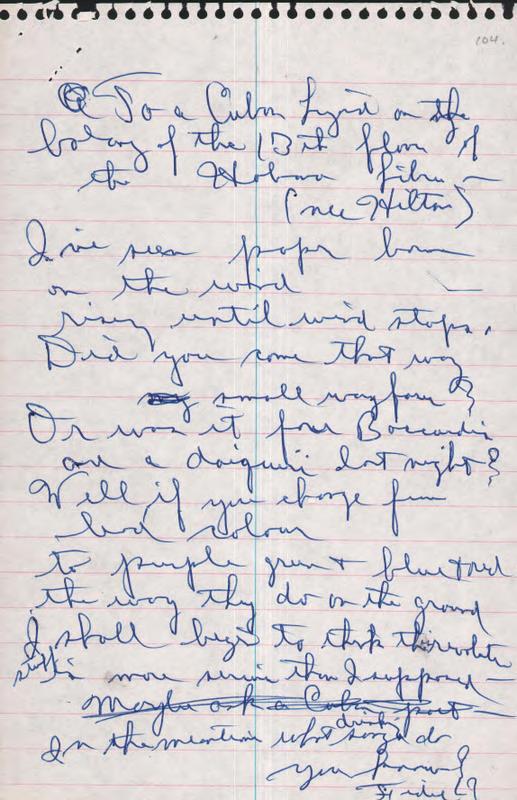 104.
To a Cuban Lizard on the
balcony of the 13th floor of
the Habana Libre —
(née Hilton)
I've seen paper borne
on the wind
rising until wind stops.
Did you come that way
small wayfarer?
Or was it four Baccardis
and a daiquiri last night?
Well if you change from
lead colour
to purple green + blue + red
the way they do on the ground
I shall begin to think the
stuff is more serious than I supposed —
Maybe ask a Cuban poet —
In the meantime what drinking songs do
you know?